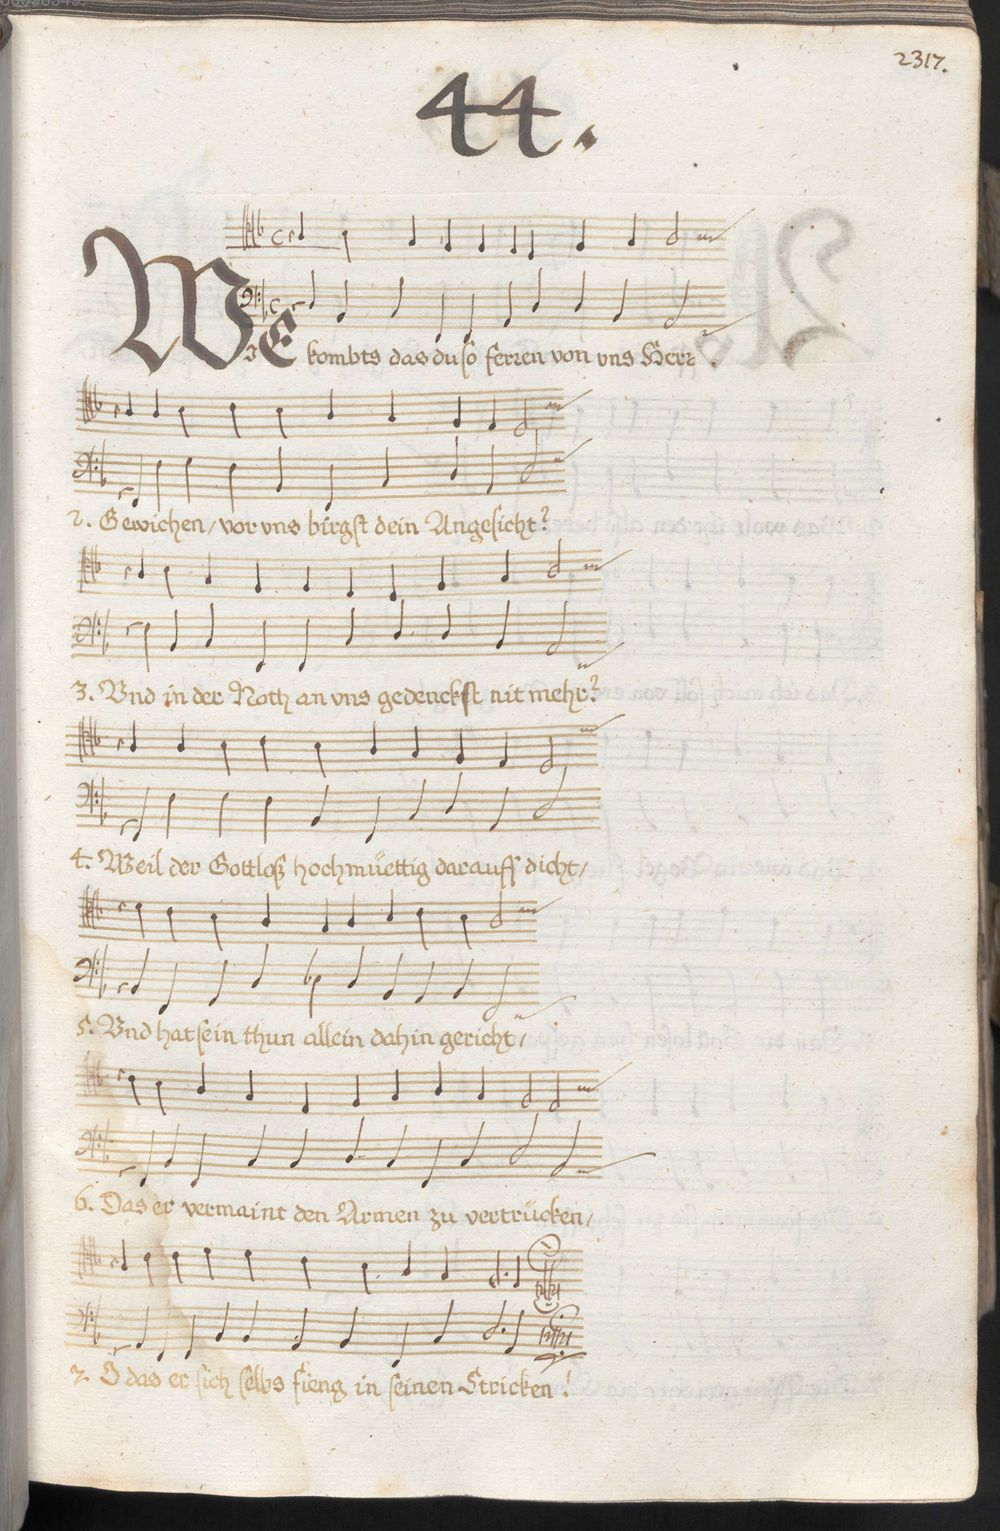 2317.
44.
WIE kombts das du so ferren von vns Herr
2. Gewichen/ vor vns birgst dein Angesicht?
3. Vnd in der Noth an vns gedenckst nit mehr?
4. Weil der Gottloß hochmüettig darauff dicht/
5. Vnd hat sein thun allein dahin gericht/
6. Das er vermaint den Armen zu vertrücken/
7. O das er sich selbs fieng in seinen Stricken!